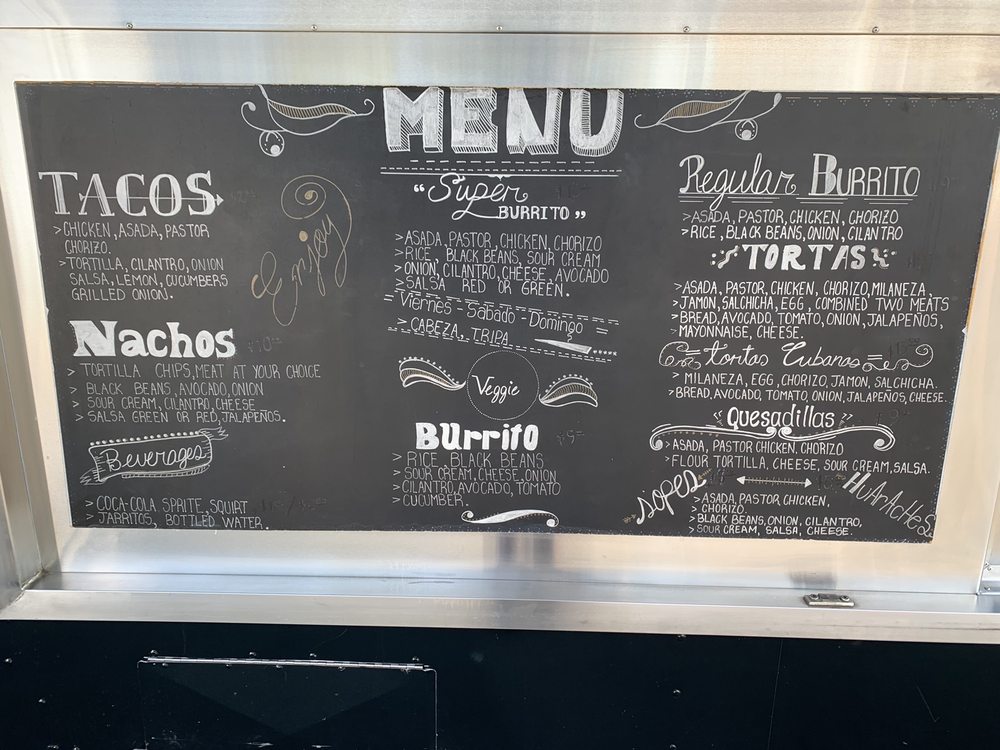 MENU
TACOS
>CHICKEN, ASADA, PASTOR
CHORIZO.
>TORTILLA, CILANTRO, ONION
SALSA, LEMON, CUCUMBERS
GRILLED ONION.
Enjoy
Nachos
> TORTILLA CHIPS, MEAT AT YOUR CHOICE
> BLACK BEANS, AVOCADO, ONION
> SOUR CREAM, CILANTRO, CHEESE
> SALSA GREEN OR RED, JALAPEÑOS.
Beverages
> COCA-COLA SPRITE, SQUIRT
> JARRITOS, BOTTLED WATER.
"Super
BURRITO"
>ASADA, PASTOR, CHICKEN, CHORIZO
>RICE, BLACK BEANS, SOUR CREAM
>ONION, CILANTRO, CHEESE, AVOCADO
>SALSA RED OR GREEN.
Viernes - Sabado - Domingo
> CABEZA, TRIPA
Veggie
BUrrito
>RICE BLACK BEANS
>SOUR CREAM, CHEESE, ONION
>CILANTRO, AVOCADO, TOMATO
CUCUMBER.
Regular BURRITO
>ASADA, PASTOR, CHICKEN, CHORIZO
>RICE, BLACK BEANS, ONION, CILANTRO
TORTAS
>ASADA, PASTOR, CHICKEN, CHORIZO, MILANEZA,
>JAMON, SALCHICHA, EGG, COMBINED TWO MEATS
>BREAD, AVOCADO, TOMATO, ONION, JALAPEÑOS,
>MAYONNAISE, CHEESE.
Tortas Cubanas
> MILANEZA, EGG, CHORIZO, JAMON, SALCHICHA.
>BREAD, AVOCADO, TOMATO, ONION, JALAPEÑOS, CHEESE.
Quesadillas
>ASADA, PASTOR CHICKEN, CHORIZO
>FLOUR TORTILLA, CHEESE, SOUR CREAM, SALSA.
SOPES
HUARACHES
>ASADA, PASTOR CHICKEN,
> CHORIZO.
>BLACK BEANS, ONION, CILANTRO,
>SOUR CREAM, SALSA, CHEESE.